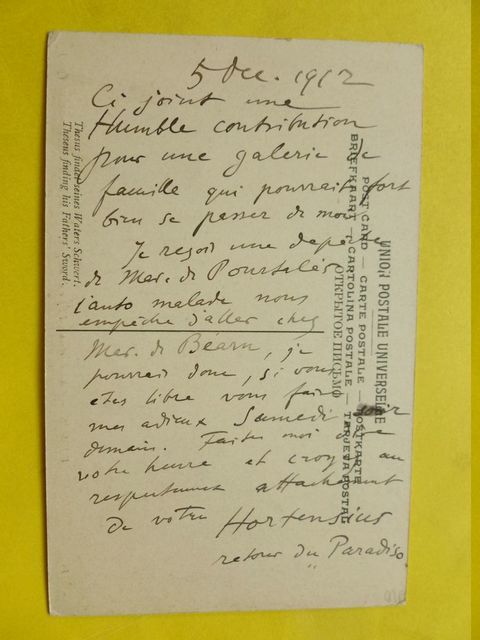 5 Dec. 1912
Ci joint une
Humble contribution
pour une galerie de
famille qui pourrait fort
bien se passer de moi
Je reçois une dépêche
de Mer. de Pourtalès
l'auto malade nous
empêche d'aller chez
Mer. de Béarn, je
pourrais donc, si vous
etes libre vous faire
mes adieux Samedi soir
demain. Faites moi dire
votre heure et croyez au
respectueux attachement
de votre Hortensius
retour du Paradiso
UNION POSTALE UNIVERSELLE
POST CARD — CARTE POSTALE — POSTKARTE
BRIEFKAART — CARTOLINA POSTALE — TARJETA POSTAL
ОТКРЫТОЕ ПИСЬМО
Thesus findet seines Vaters Schwert.
Theseus finding his Fathers' Sword.